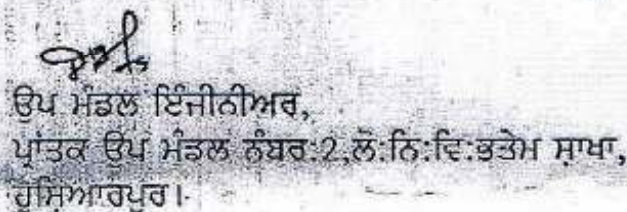 ਉਪ ਮੰਡਲ ਇੰਜੀਨੀਅਰ,
ਪ੍ਰਾਂਤਕ ਉਪ ਮੰਡਲ ਨੰਬਰ:2,ਲੋ:ਨਿ:ਵਿ:ਭਤੇਮ ਸ਼ਾਖਾ,
ਹੁਸ਼ਿਆਰਪੁਰ।